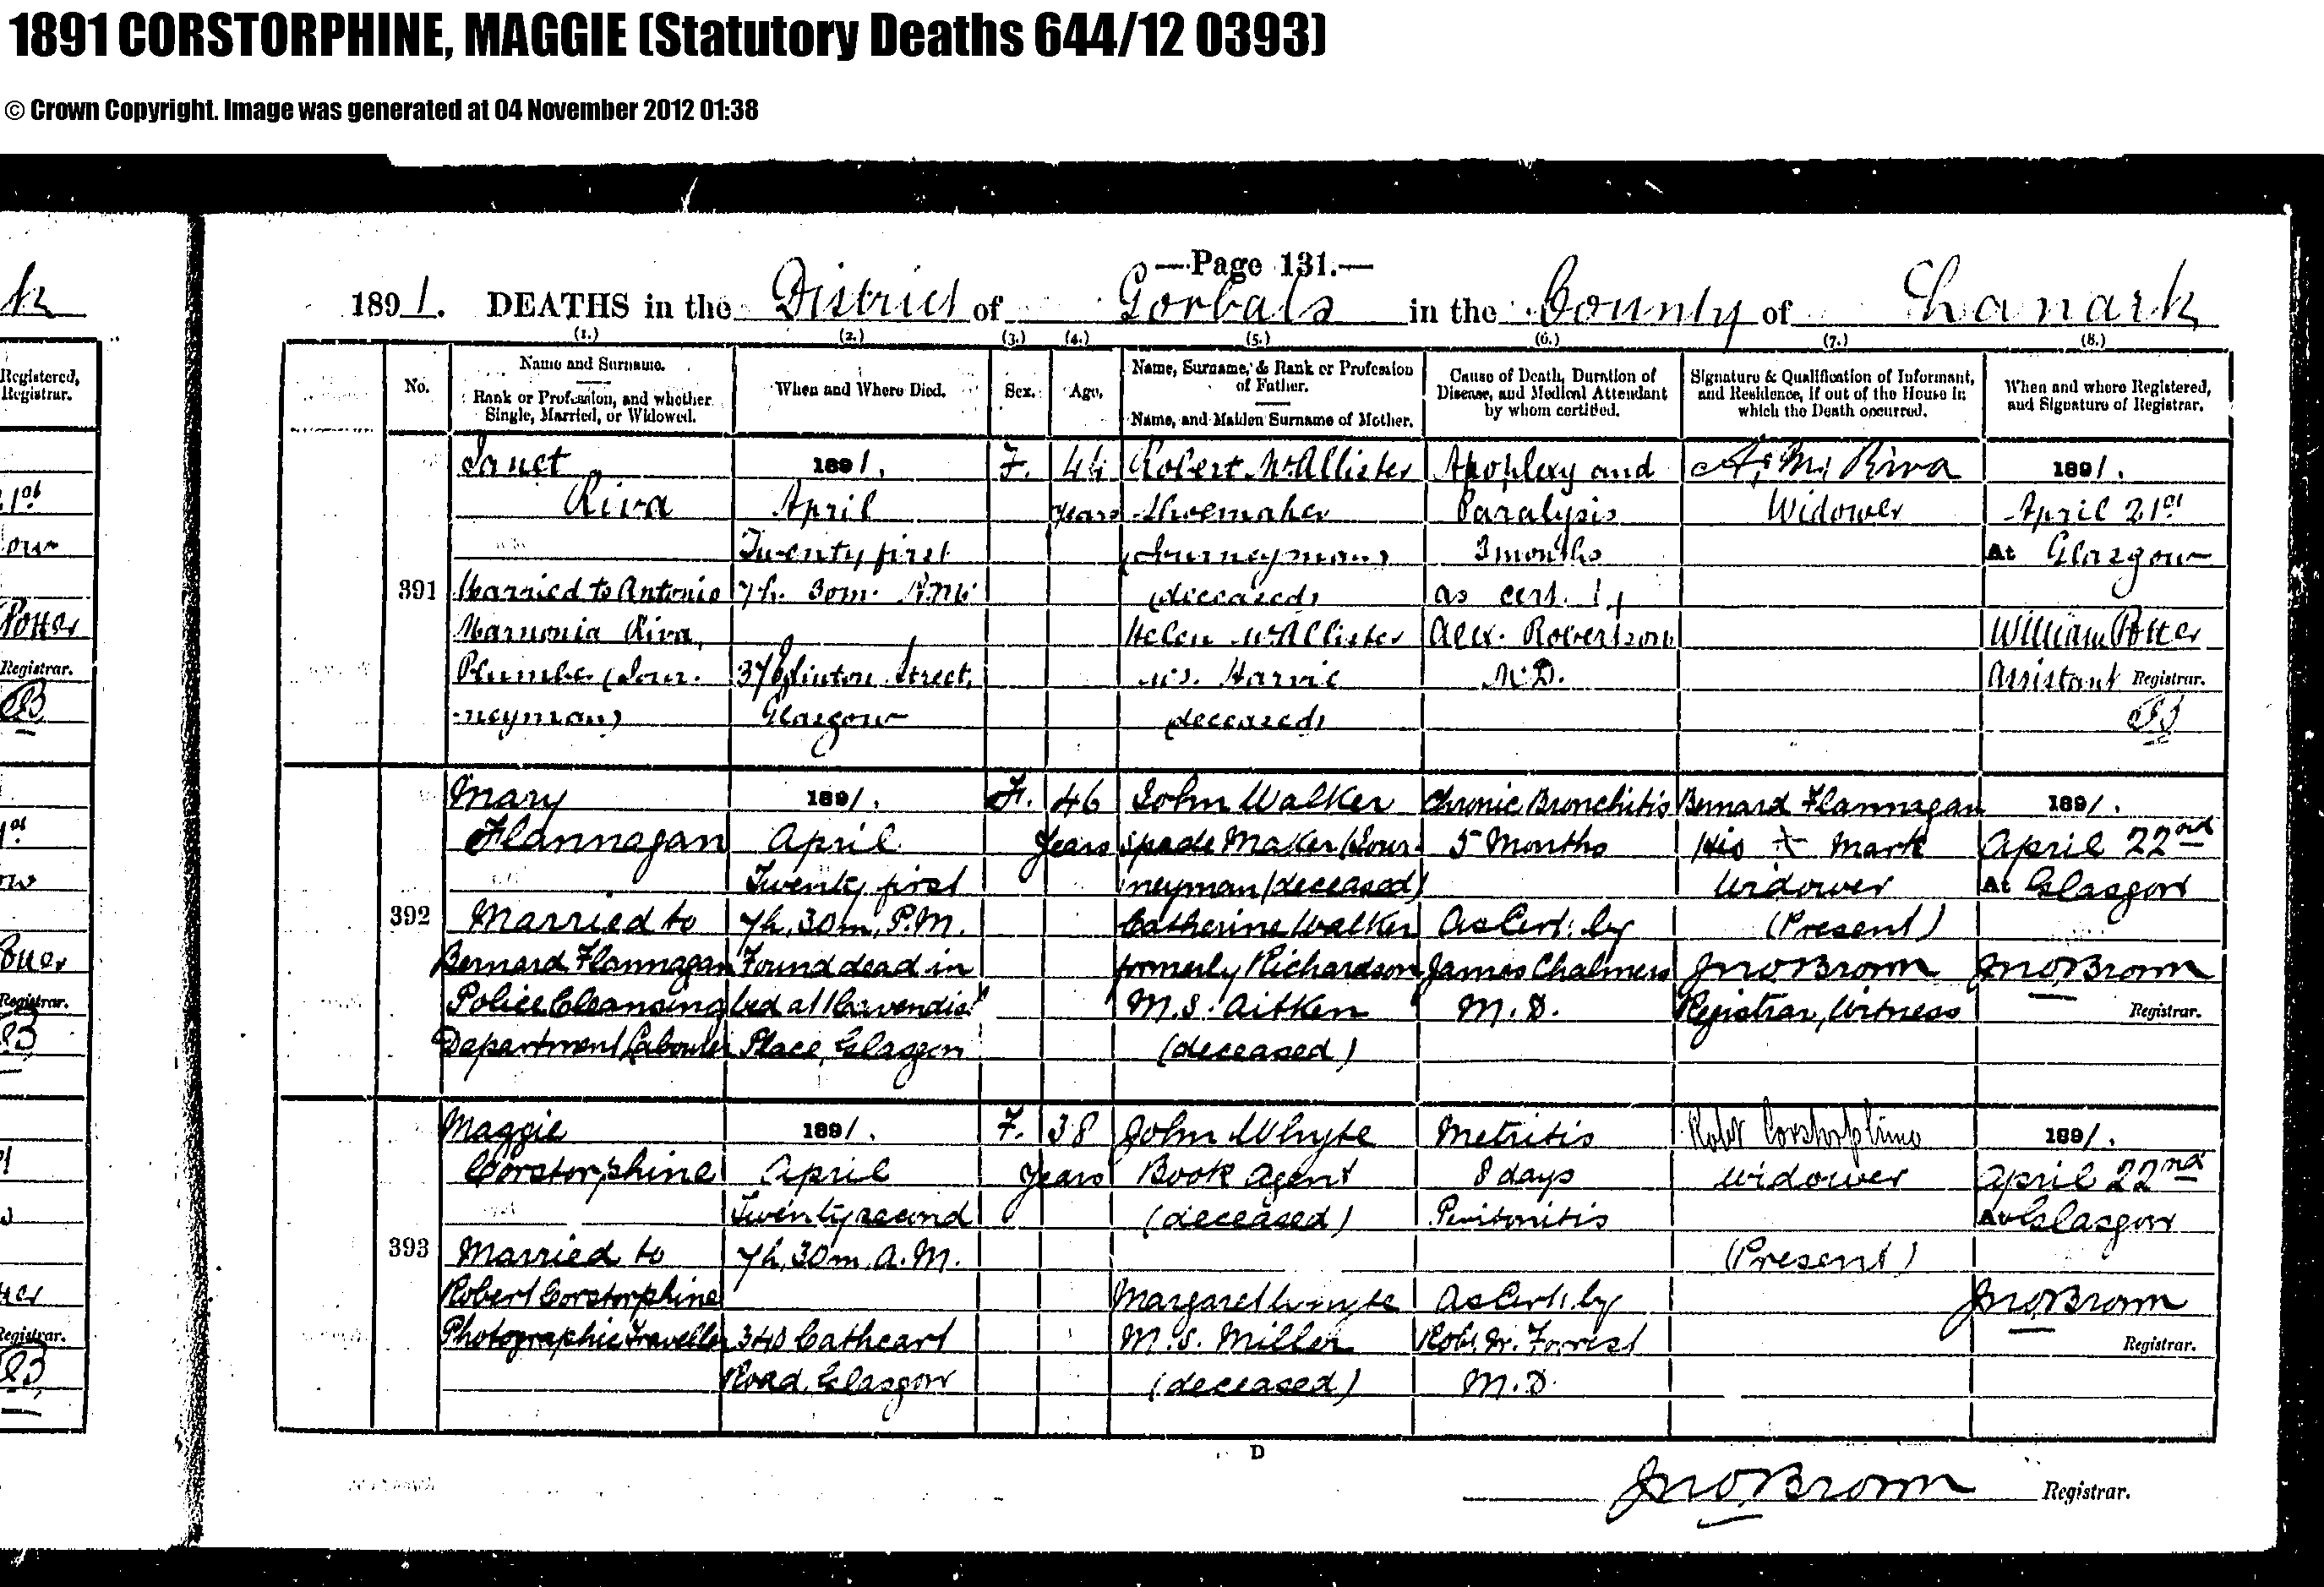 1891 CORSTORPHINE, MAGGIE (Statutory Deaths 644/12 0393)
© Crown Copyright. Image was generated at 04 November 2012 01:38
—Page 131.—
1891. DEATHS in the District of Gorbals in the County of Lanark
(1.) (2.) (3.) (4.) (5.) (6.) (7.) (8.)
No.
Name and Surname.
Rank or Profession, and whether
Single, Married, or Widowed.
When and Where Died.
Sex.
Age.
Name, Surname, & Rank or Profession
of Father.
Name, and Maiden Surname of Mother.
Cause of Death, Duration of
Disease, and Medical Attendant
by whom certified.
Signature & Qualification of Informant,
and Residence, if out of the House in
which the Death occurred.
When and where Registered,
and Signature of Registrar.
391
Janet
Riva
Married to Antonio
Riva,
Plumber (Jour-
neyman)
1891.
April
Twenty first
7h. 30m.
37 Eglinton Street,
Glasgow
F.
44
years
Robert McAllister
Shoemaker
(Journeyman)
(deceased)
Helen McAllister
M.S. Harvie
(deceased)
Apoplexy and
Paralysis
3 months
as cert. by
Alex. Robertson
M.D.
A. M. Riva
Widower
1891.
April 21st
At Glasgow
William Potter
Assistant Registrar.
392
Mary
Flannagan
Married to
Bernard Flannagan
Police Cleansing
Department Labourer
1891.
April
Twenty first
7h. 30m. P.M.
Found dead in
bed at 1 Cavendish
Place, Glasgow
F.
46
Years
John Walker
Spade Maker (Jour-
neyman) (deceased)
Catherine Walker
formerly Richardson
M.S. Aitken
(deceased)
Chronic Bronchitis
5 Months
As Cert. by
James Chalmers
M.D.
Bernard Flannagan
His X Mark
Widower
(Present)
Jno Brown
Registrar, Witness
1891.
April 22nd
At Glasgow
Jno Brown
Registrar.
393
Maggie
Corstorphine
Married to
Robert Corstorphine
Photographic Traveller
1891.
April
Twenty second
7h. 30m. A.M.
340 Cathcart
Road, Glasgow
F.
38
Years
John Whyte
Book Agent
(deceased)
Margaret Whyte
M.S. Miller
(deceased)
Metritis
8 days
Peritonitis
As Cert. by
Robt. W. Forrest
M.D.
Robt Corstorphine
Widower
(Present)
1891.
April 22nd
At Glasgow
Jno Brown
Registrar.
D
Jno Brown Registrar.